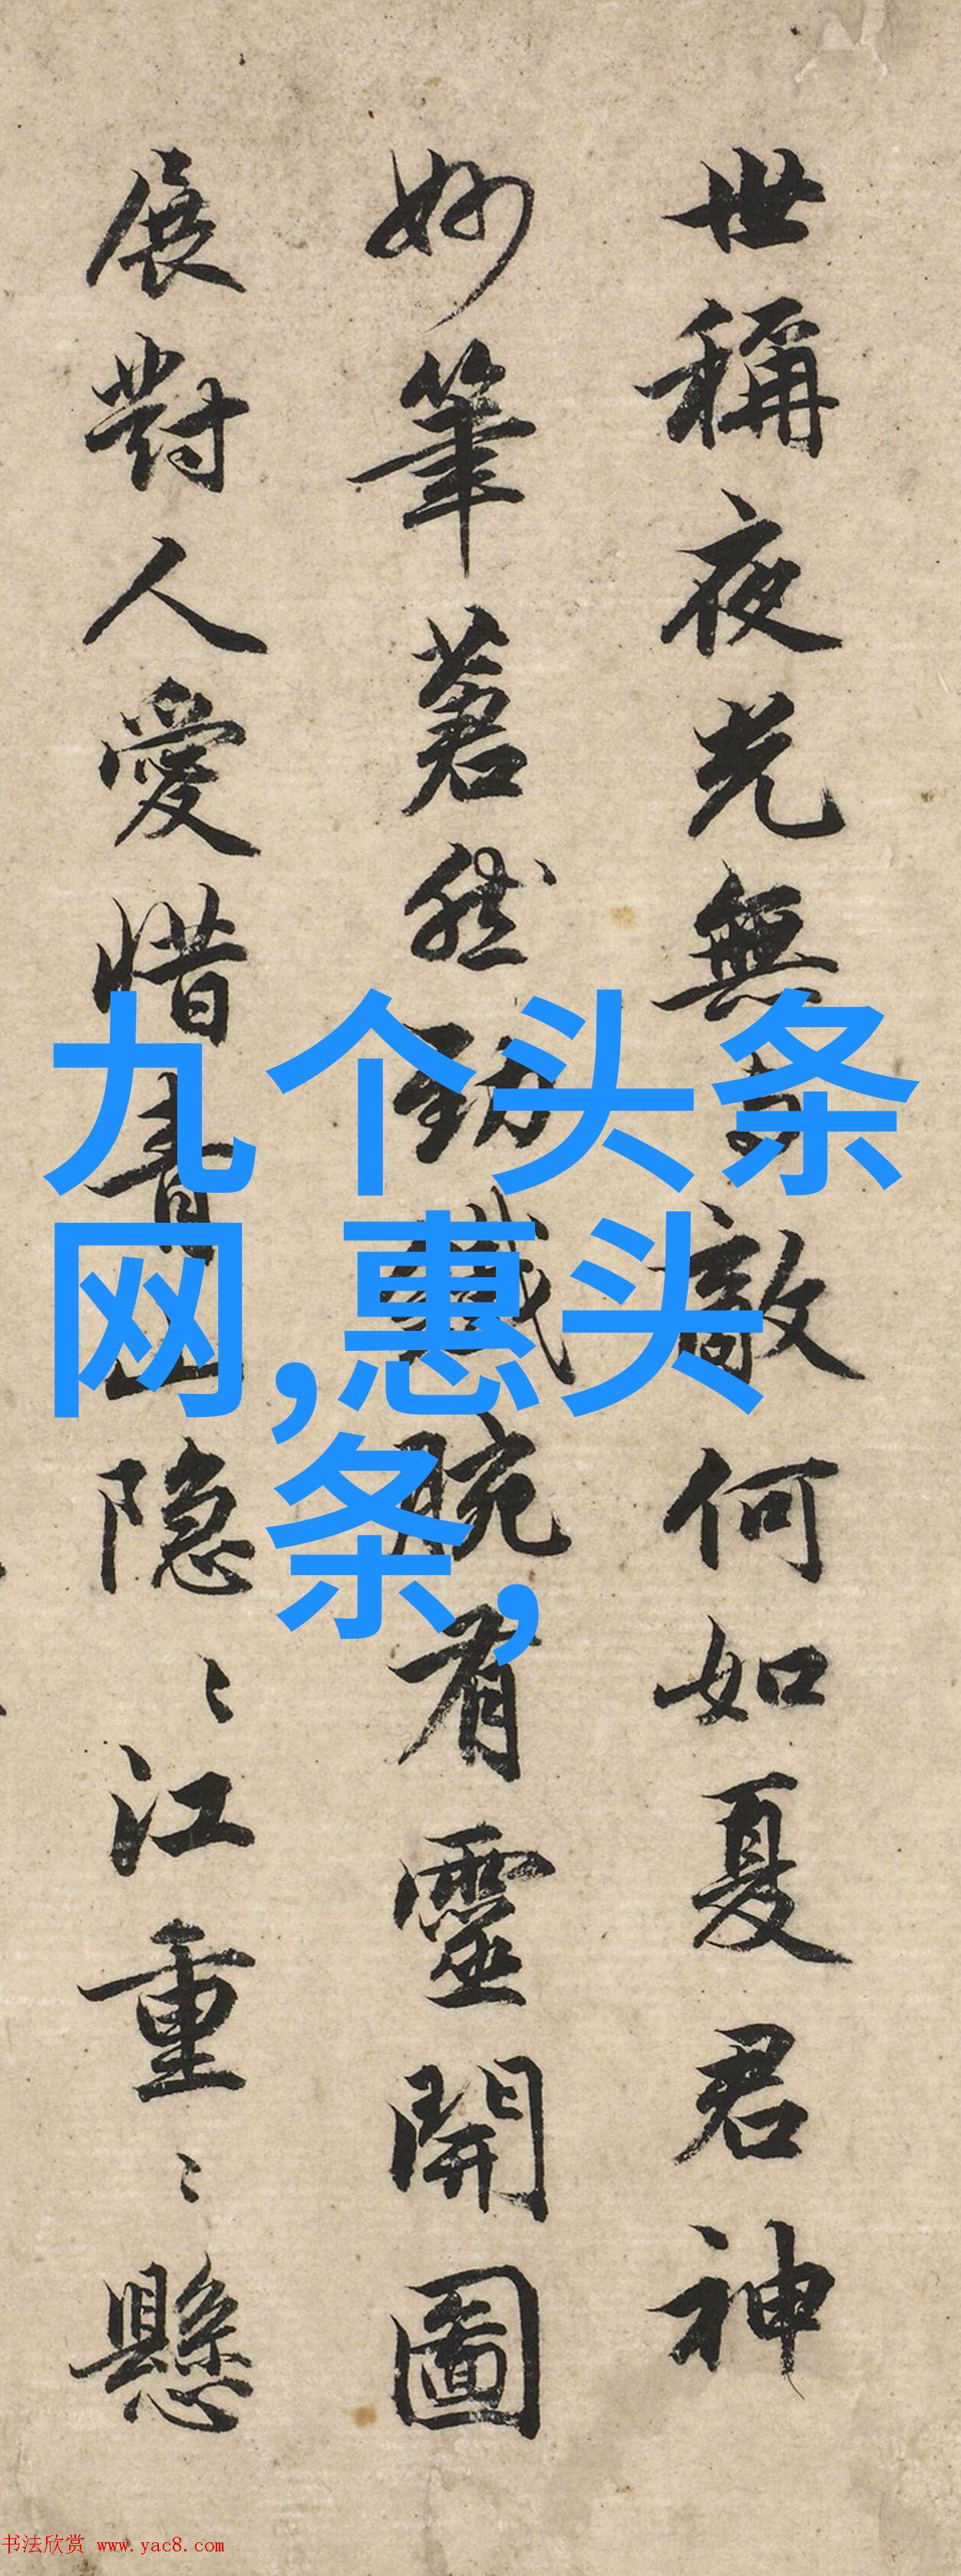 世稱夜光無与敵何如夏君神
妙筆著然勁鐵腕有靈開圖
展對人愛惜青山隐〻江重〻懸
九个头条
网,惠头
条,
书法欣赏 www.yac8.com